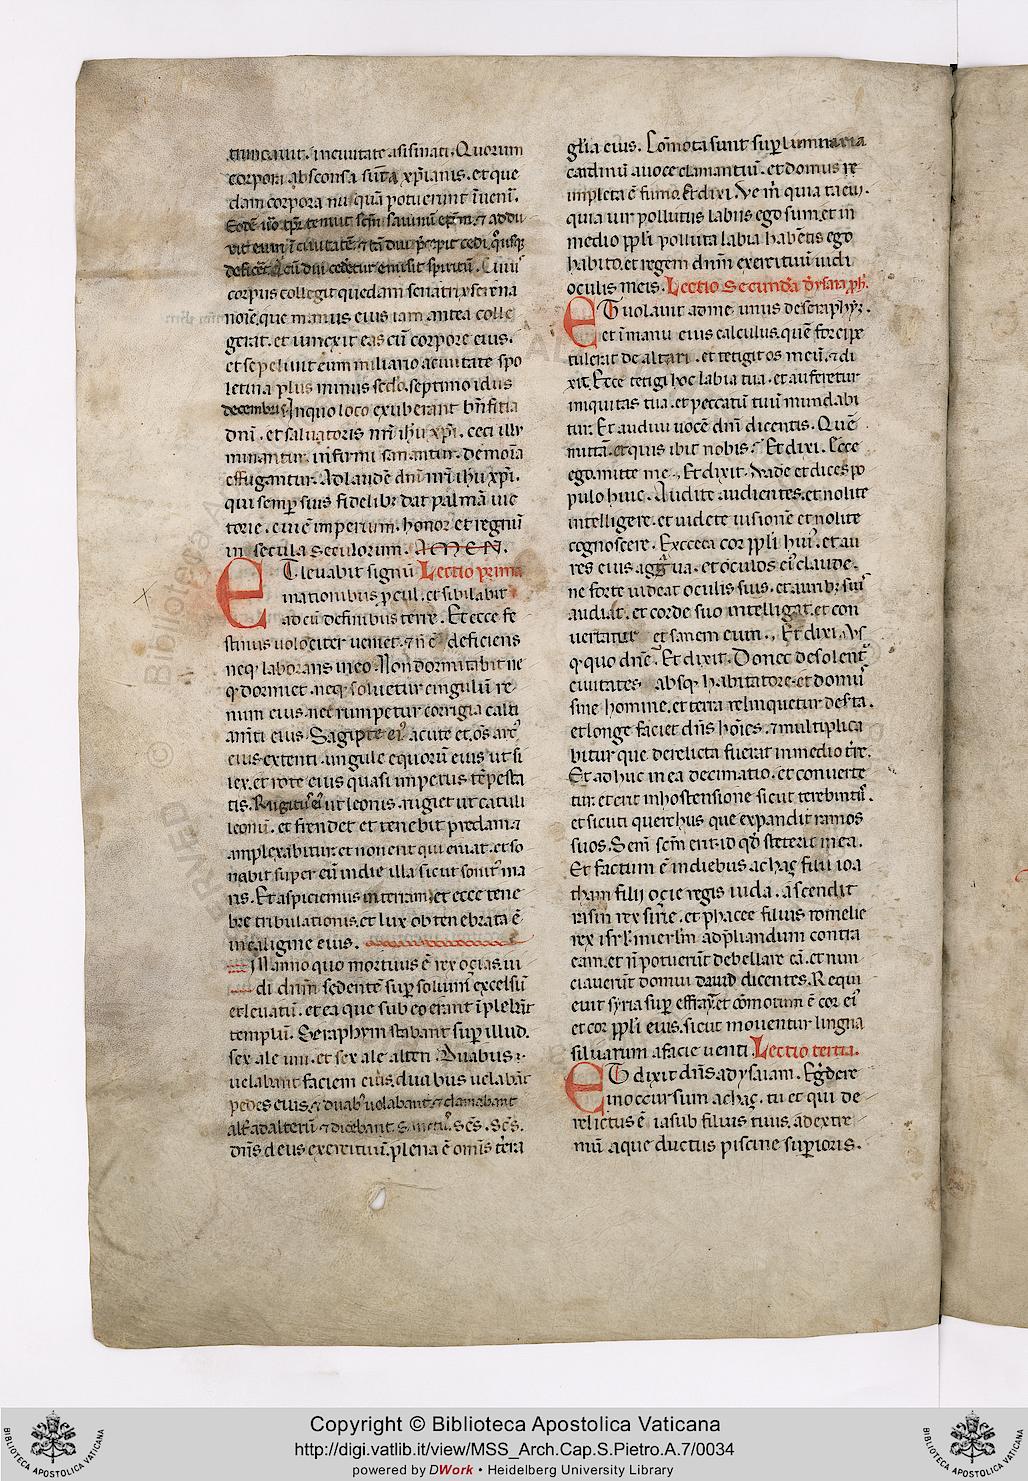 truncauit. inciuitate asisinati. Quorum
corpora absconsa sūt a xp̄ianis. et que
dam corpora nusquā potuerunt īueni.
corpus collegit quedam senatrix serena
noīe, que manus eius iam antea colle
gerat. et iunexit eas cū corpore eius.
et sepeliuit eum miliario aciuitate spo
letina plus minus scđo. septimo idus
decembris. Inquo loco exuberant bn̄fitia
dnī. et saluatoris nr̄i ih̄u xp̄i. ceci illu
minantur. infirmi sanantur. demoīa
effugantur. Ad laudē dnī nr̄i ih̄u xp̄i.
qui semꝑ suis fidelibꝫ dat palmā uic
torie. cui ē imperium. honor et regnū
in secula seculorum. AMEN.
ET leuabit signū Lectio prima
inationibus ꝓcul. et sibilabit
ad eū definibus terre. Et ecce fe
stinus uelociter ueniet. ⁊ n̄ ē deficiens
neqꝫ laborans ineo. Non dormitabit ne
qꝫ dormiet. neqꝫ soluetur cingulū re
num eius. nec rumpetur corrigia calti
amti eius. Sagipte eiꝰ acute et. oīs arcꝰ
eius extenti. ungule equorū eius ut si
lex. et rote eius quasi impetus tēpesta
tis. Rugitꝰ eiꝰ ut leonis. rugiet ut catuli
leonū. et frendet et tenebit predam. ⁊
amplexabitur. et non erit qui eruat. et so
nabit super eū indie illa sicut sonitꝰ ma
ris. Et aspiciemus interram. et ecce tene
bre tribulationis. et lux obtenebrata ē
incaligine eius.
IN anno quo mortuus ē rex oçias. ui
di dnm̄ sedentē suꝑ soliūm excelsū
et leuatū. et ea que sub eo erant īplebāt
templū. Seraphym stabant suꝑ illud.
sex ale uni. et sex ale alteri. Duabus
uelabant faciem eius. duabus uelabāt
pedes eius. ⁊ duabꝰ uolabant. ⁊ clamabant
alt̄ ad alterū. ⁊ dicebant. Sanctuꝰ. sc̄s. sc̄s.
dn̄s deus exercituū. plena ē omīs terra
gl̄ia eius. Cōmota sunt suꝑluminaria
cardinū auoce clamantiū. et domus re
impleta ē fumo. Et dixi. Ve m̄ quia tacui.
quia uir pollutus labiis ego sum. et in
medio pp̄li polluta labia habētis ego
habito. et regem dnm̄ exercituū uidi
oculis meis. Lectio secunda dysaia ꝓph.
ET uolauit adme unus deseraphyn.
et īmanu eius calculus. quē forcipe
tulerat de altari. et tetigit os meū. ⁊ di
xit. Ecce tetigi hoc labia tua. et auferetur
iniquitas tua. et peccatū tuū mundabi
tur. Et audiui uocē dnī dicentis. Quē
mittā. et quis ibit nobis? Et dixi. Ecce
ego. mitte me. Et dixit. Vade et dices po
pulo huic. Audite audientes. et nolite
intelligere. et uidete uisionē et nolite
cognoscere. Exceca cor pp̄li huiꝰ. et au
res eius aggͣua. et oculos eiꝰ claude.
ne forte uideat oculis suis. et auribꝫ suis
audiat. et corde suo intelligat. et con
uertatur et sanem eum. Et dixi. Vs
qꝫ quo dnē? Et dixit. Donec desolent᷑
ciuitates absqꝫ habitatore. et domꝰ
sine homine. et terra relinquetur deserta.
et longe faciet dn̄s hoīes. ⁊ multiplica
bitur que derelicta fuerat inmedio t̄re.
Et adhuc in ea decimatio. et conuerte
tur. et erit inhostensione sicut terebintꝰ.
et sicuti quercus que expandit ramos
suos. Semē sc̄m erit. id qđ steterit inea.
Et factum ē indiebus achaç filii ioa
tham filii oçie regis iuda. ascendit
risin rex sirie. et phacee filius romelie
rex isrl̄. inierlm̄ adp̄liandum contra
eam. et n̄ potuerūt debellare eā. et nun
ciauerūt domui dauid dicentes. Requi
euit syria suꝑ effraym et cōmotum ē cor eiꝰ
et cor pp̄li eius. sicut mouentur lingna
siluarum afacie uenti. Lectio tertia.
ET dixit dn̄s adysaiam. Egredere
inoccursum achaç. tu et qui de
relictus ē iasub filius tuus. adextre
mū aque ductus piscine suꝑioris.
Copyright © Biblioteca Apostolica Vaticana
http://digi.vatlib.it/view/MSS_Arch.Cap.S.Pietro.A.7/0034
powered by DWork • Heidelberg University Library
BIBLIOTECA APOSTOLICA VATICANA
BIBLIOTECA APOSTOLICA VATICANA